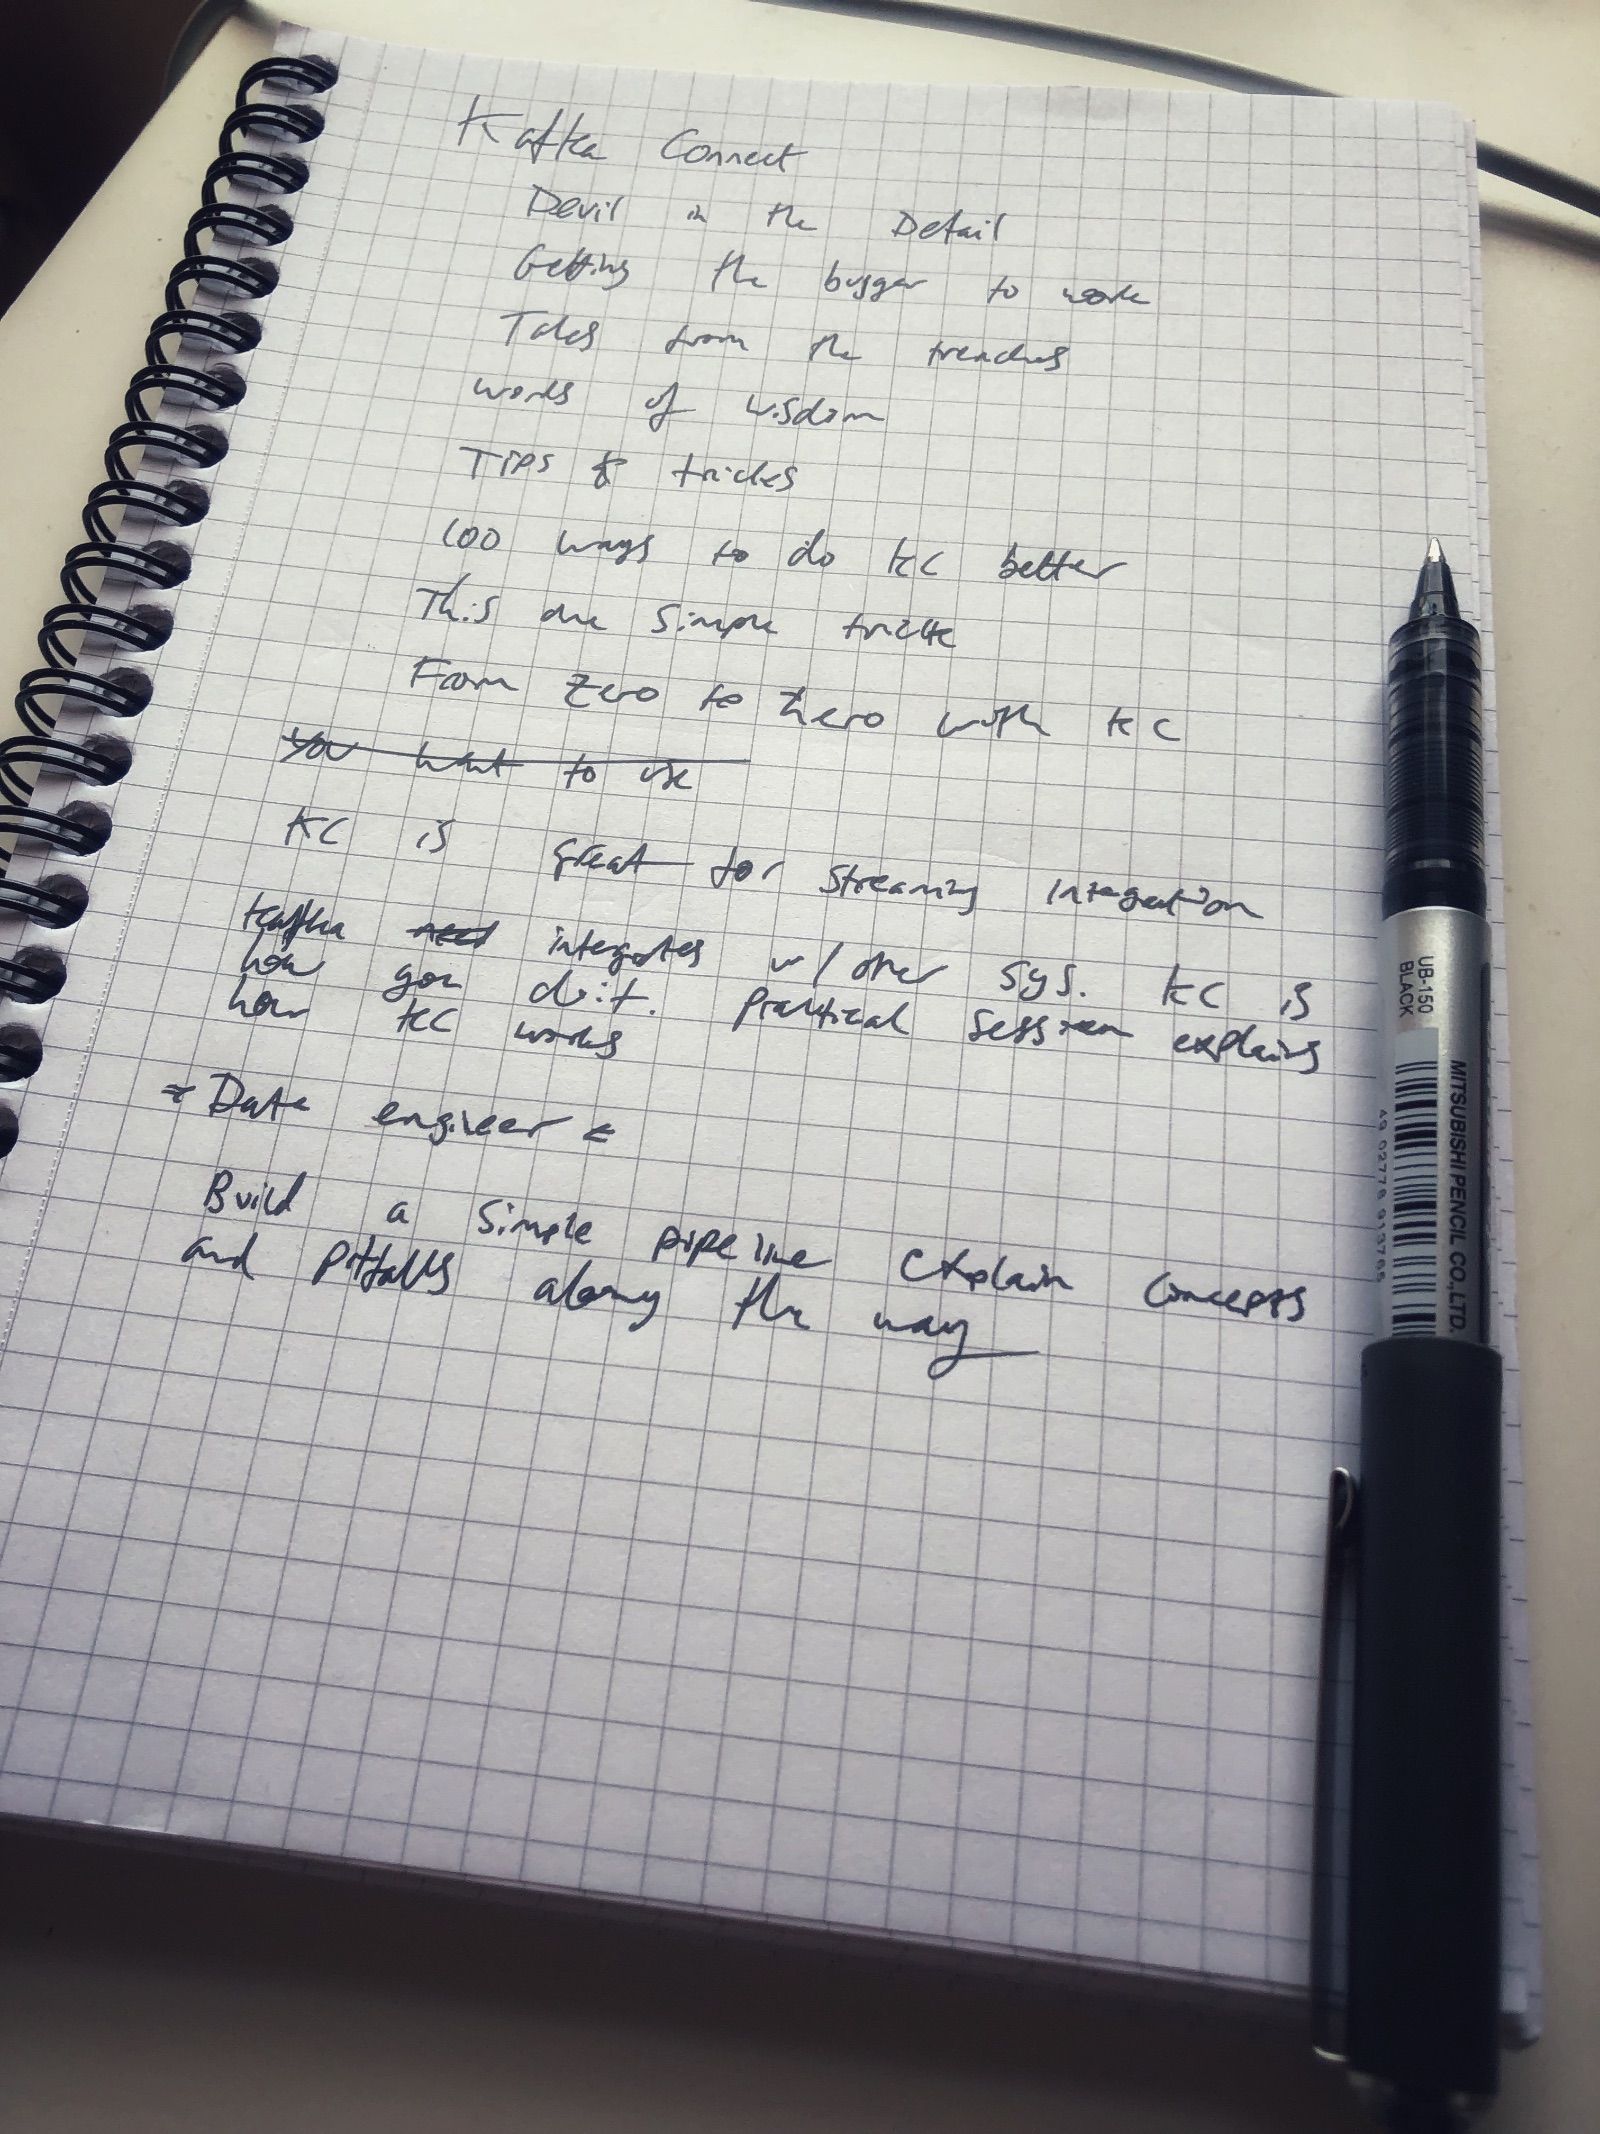 Kafka Connect
Devil in the Detail
Getting the bugger to work
Tales from the trenches
words of wisdom
Tips & tricks
100 ways to do KC better
This one simple trick
From zero to hero with KC
You want to use
KC is great for streaming integration
Kafka need integrates w/ other sys. KC is
how you do it. Practical session explains
how KC works
Data engineer
Build a simple pipeline explain concepts
and pitfalls along the way
UB-150
BLACK
MITSUBISHI PENCIL CO., LTD.